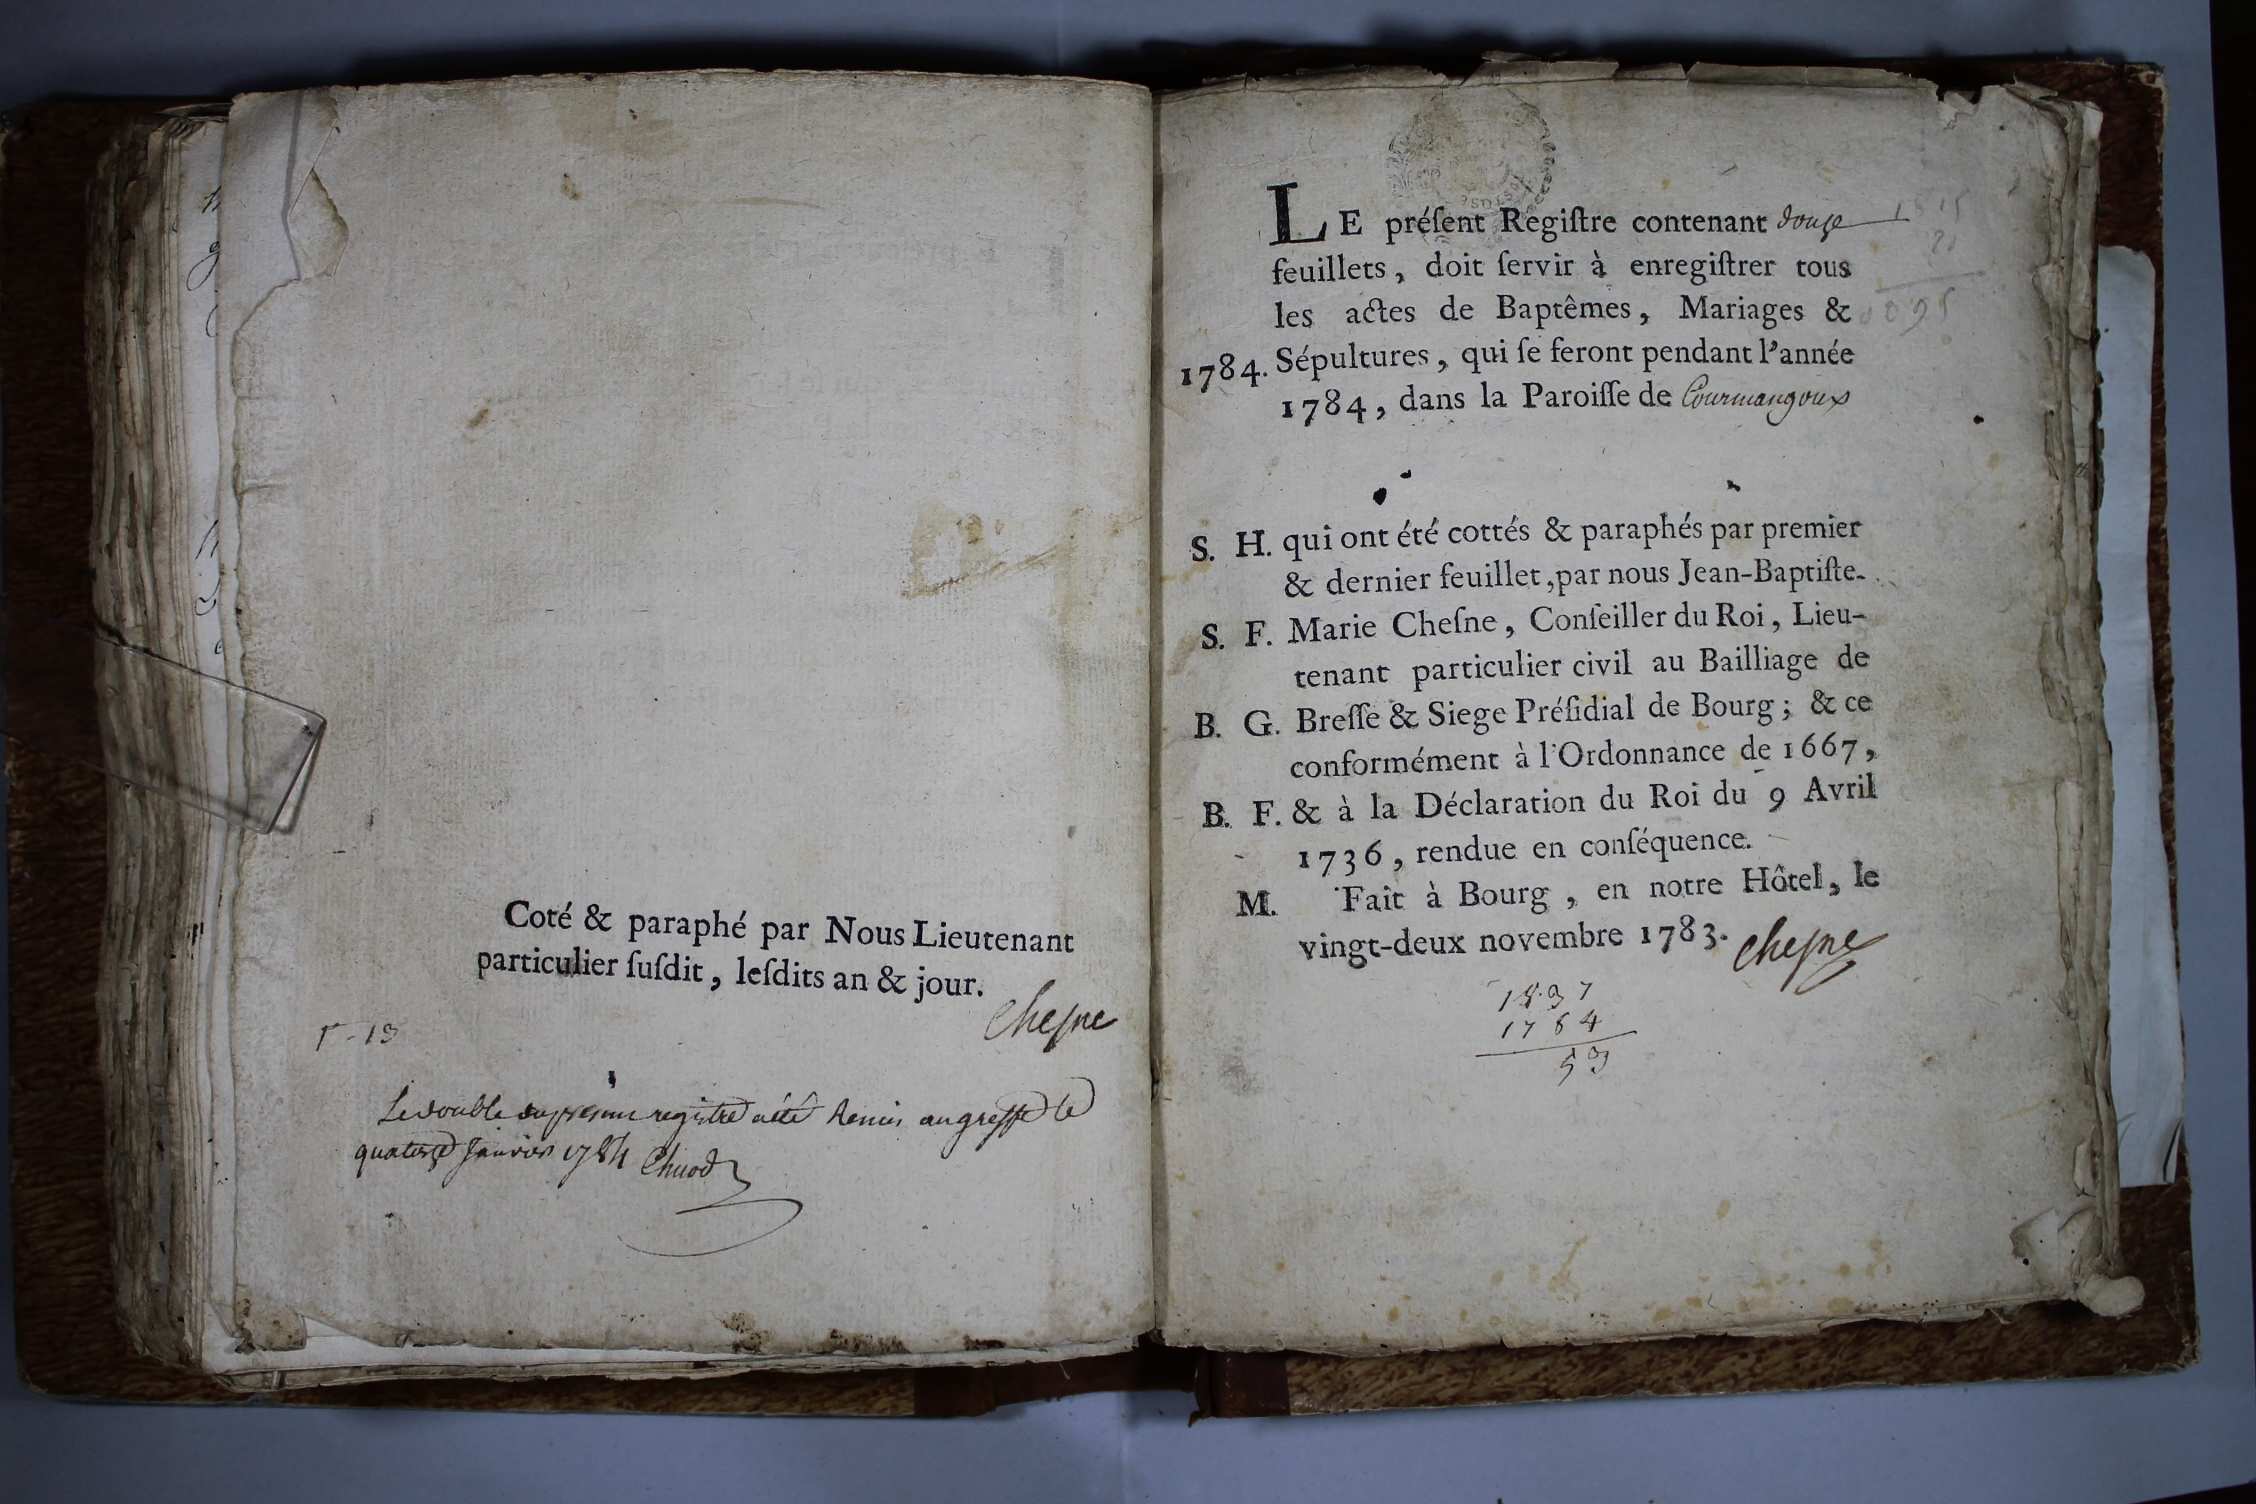 Coté & paraphé par Nous Lieutenant
particulier ſuſdit, leſdits an & jour.
Cheſne
Le double du preſent regiſtre a été Remis au greffe le
quatorze Janvier 1784
LE préſent Regiſtre contenant douze
feuillets, doit ſervir à enregiſtrer tous
les actes de Baptêmes, Mariages &
1784. Sépultures, qui ſe feront pendant l'année
1784, dans la Paroiſſe de Courmangoux
S. H. qui ont été cottés & paraphés par premier
& dernier feuillet, par nous Jean-Baptiſte-
S. F. Marie Cheſne, Conſeiller du Roi, Lieu-
tenant particulier civil au Bailliage de
B. G. Breſſe & Siege Préſidial de Bourg; & ce
conformément à l'Ordonnance de 1667,
B. F. & à la Déclaration du Roi du 9 Avril
1736, rendue en conſéquence.
M. Fait à Bourg, en notre Hôtel, le
vingt-deux novembre 1783. Cheſne
1837
1784
53